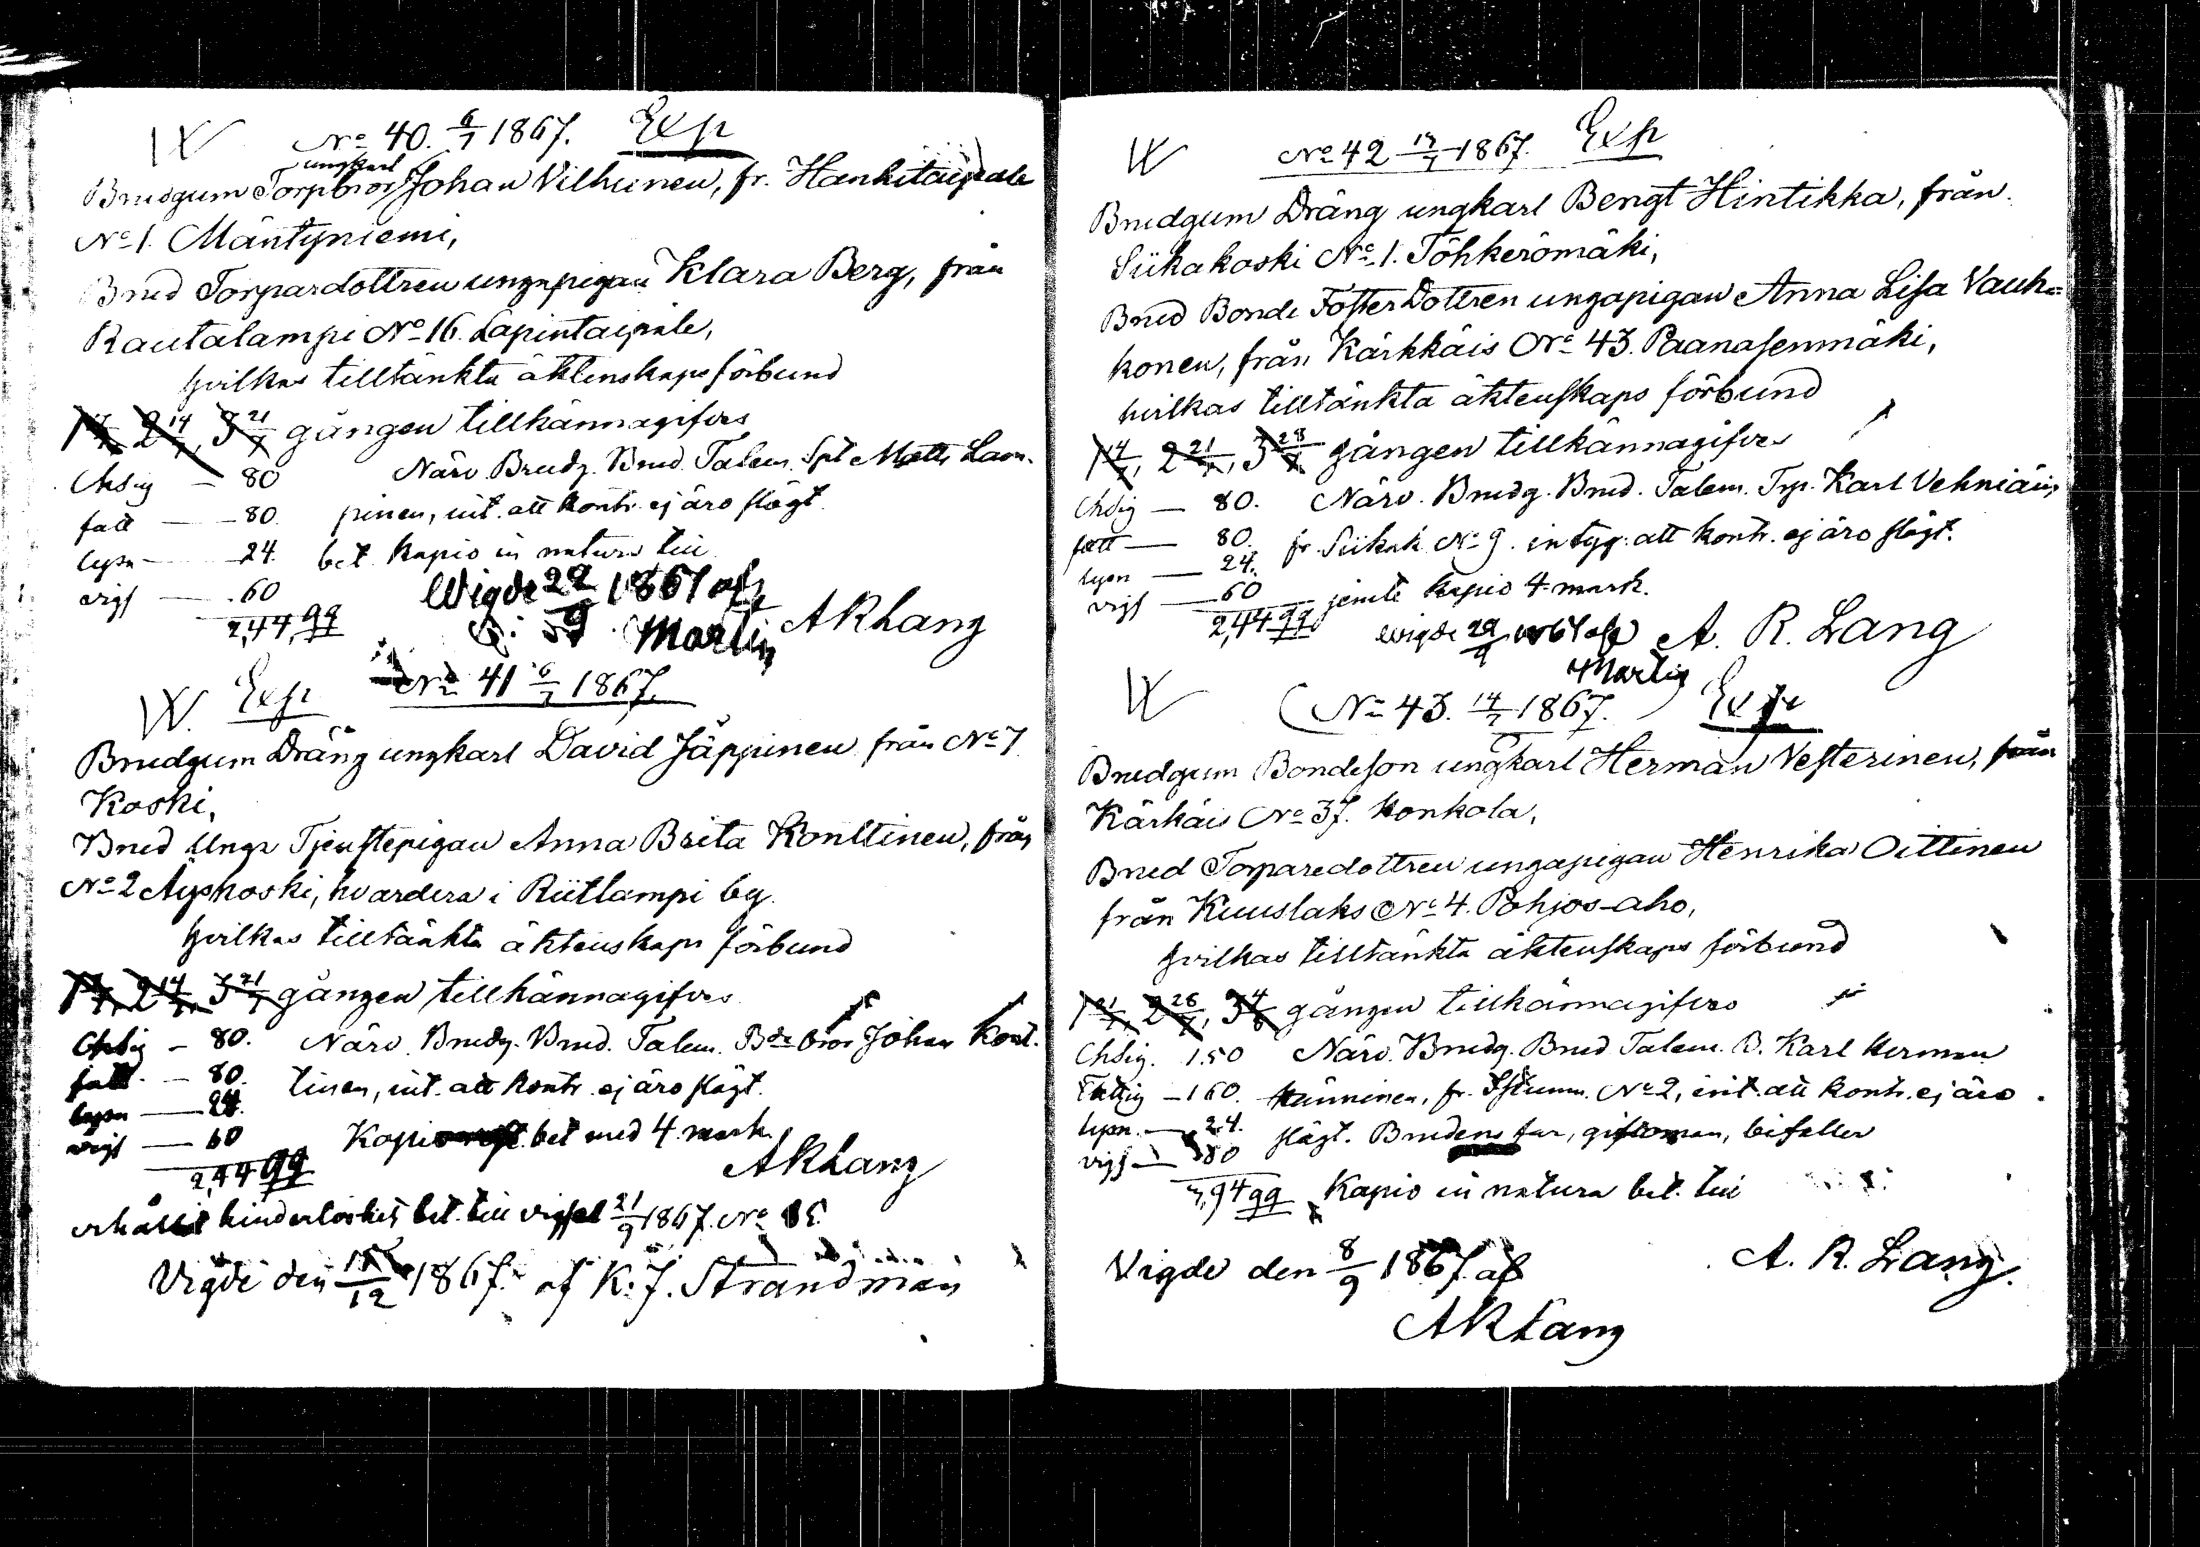 W No 40. 6/7 1867. Exp
ungkarl
Brudgum Torpbror Johan Vilhunen, fr. Hankitaipale
No 1. Mäntyniemi,
Brud Torpardottren ungapigan Klara Berg, från
Rautalampi No 16. Lapintaipale,
hvilkas tilltänkta äktenskaps förbund
1 7/7, 2 14/7, 3 21/7 gången tillkännagifves
Chsig — 80 Närv. Brudg. Brud. Talem. Spt Matts Laon-
fatt — 80. pinen, int. att kontr. ej äro slägt.
lysn — 24. bet. kapio in natura till
vigs — 60
2,44,99
Wigde 22/9 1867 af
Martin
AR Lang
No 41 6/7 1867.
W. Exp
Brudgum Dräng ungkarl David Jäppinen från No 7
Koski,
Brud Unga Tjenstepigan Anna Brita Konttinen, från
No 2 Äyskoski, hvardera i Riitlampi by.
hvilkas tilltänkta äktenskaps förbund
1 7/7, 2 14/7, 3 21/7 gången tillkännagifves
Chsig — 80. Närv. Brudg. Brud. Talem. Bde bror Johan Kont-
fatt — 80. tinen, int. att kontr. ej äro slägt.
lysn — 24.
vigs — 60 Kapio bet med 4 mark.
2,44 99
AR Lang
erhållit hinderlöshets bet. till vigsel 21/9 1867. No
Vigde den /12 1867. af K. J. Strandman
W No 42 13/7 1867. Exp
Brudgum Dräng ungkarl Bengt Hintikka, från
Siikakoski No 1. Töhkerömäki,
Brud Bonde FosterDottren ungapigan Anna Lisa Vauh-
konen, från Kärkkäis No 43. Paanasenmäki,
hvilkas tilltänkta äktenskaps förbund
1 14/7, 2 21/7, 3 28/7 gången tillkännagifves
Chsig — 80. Närv. Brudg. Brud. Talem. Trp. Karl Vehniäin
fatt — 80. fr. Siikak. No 9. intyg. att kontr. ej äro slägt.
lysn — 24.
vigs — 60 jemte kapio 4 mark.
2,44 99
Wigde 29/9 1867 af
Martin
A. R. Lang
W No 43. 14/7 1867. Exp
Brudgum Bondeson ungkarl Herman Vesterinen, från
Kärkäis No 37. Konkola,
Brud Torparedottren ungapigan Henrika Oittinen
från Kuuslaks No 4. Pohjos-aho,
hvilkas tilltänkta äktenskaps förbund
1 21/7, 2 28/7, 3 4/8 gången tillkännagifves
Chsig. 1.50 Närv. Brudg. Brud Talem. B. Karl Herman
Fattig — 160. Hänninen, fr. No 2, int. att kontr. ej äro
lysn. — 24. slägt. Brudens far, giftoman, bifaller
vigs — 80
99 Kapio in natura bet. till
A. R. Lang.
Vigde den 8/9 1867. af
AR Lang